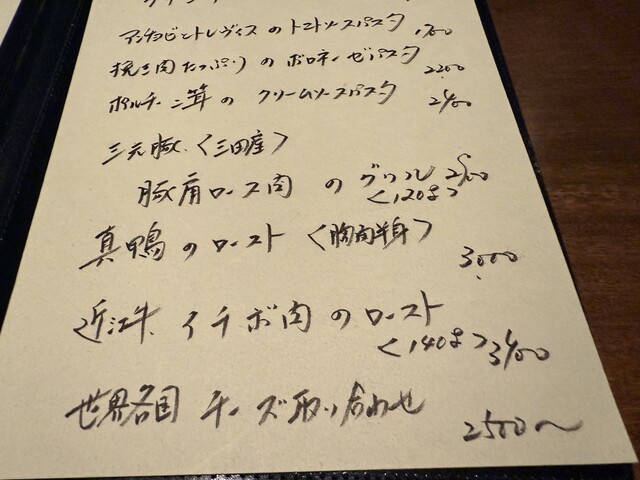 アンチョビとトレヴィスのトマトソースパスタ 1700
挽き肉たっぷりのボロネーゼパスタ 2200
ポルチーニ茸のクリームソースパスタ 2400
三元豚 〈三田産〉
豚肩ロース肉のグリル 2900
〈120g〉
真鴨のロースト 〈胸肉半身〉
3000
近江牛 イチボ肉のロースト
〈140g〉 3400
世界各国 チーズ取り合わせ
2500〜